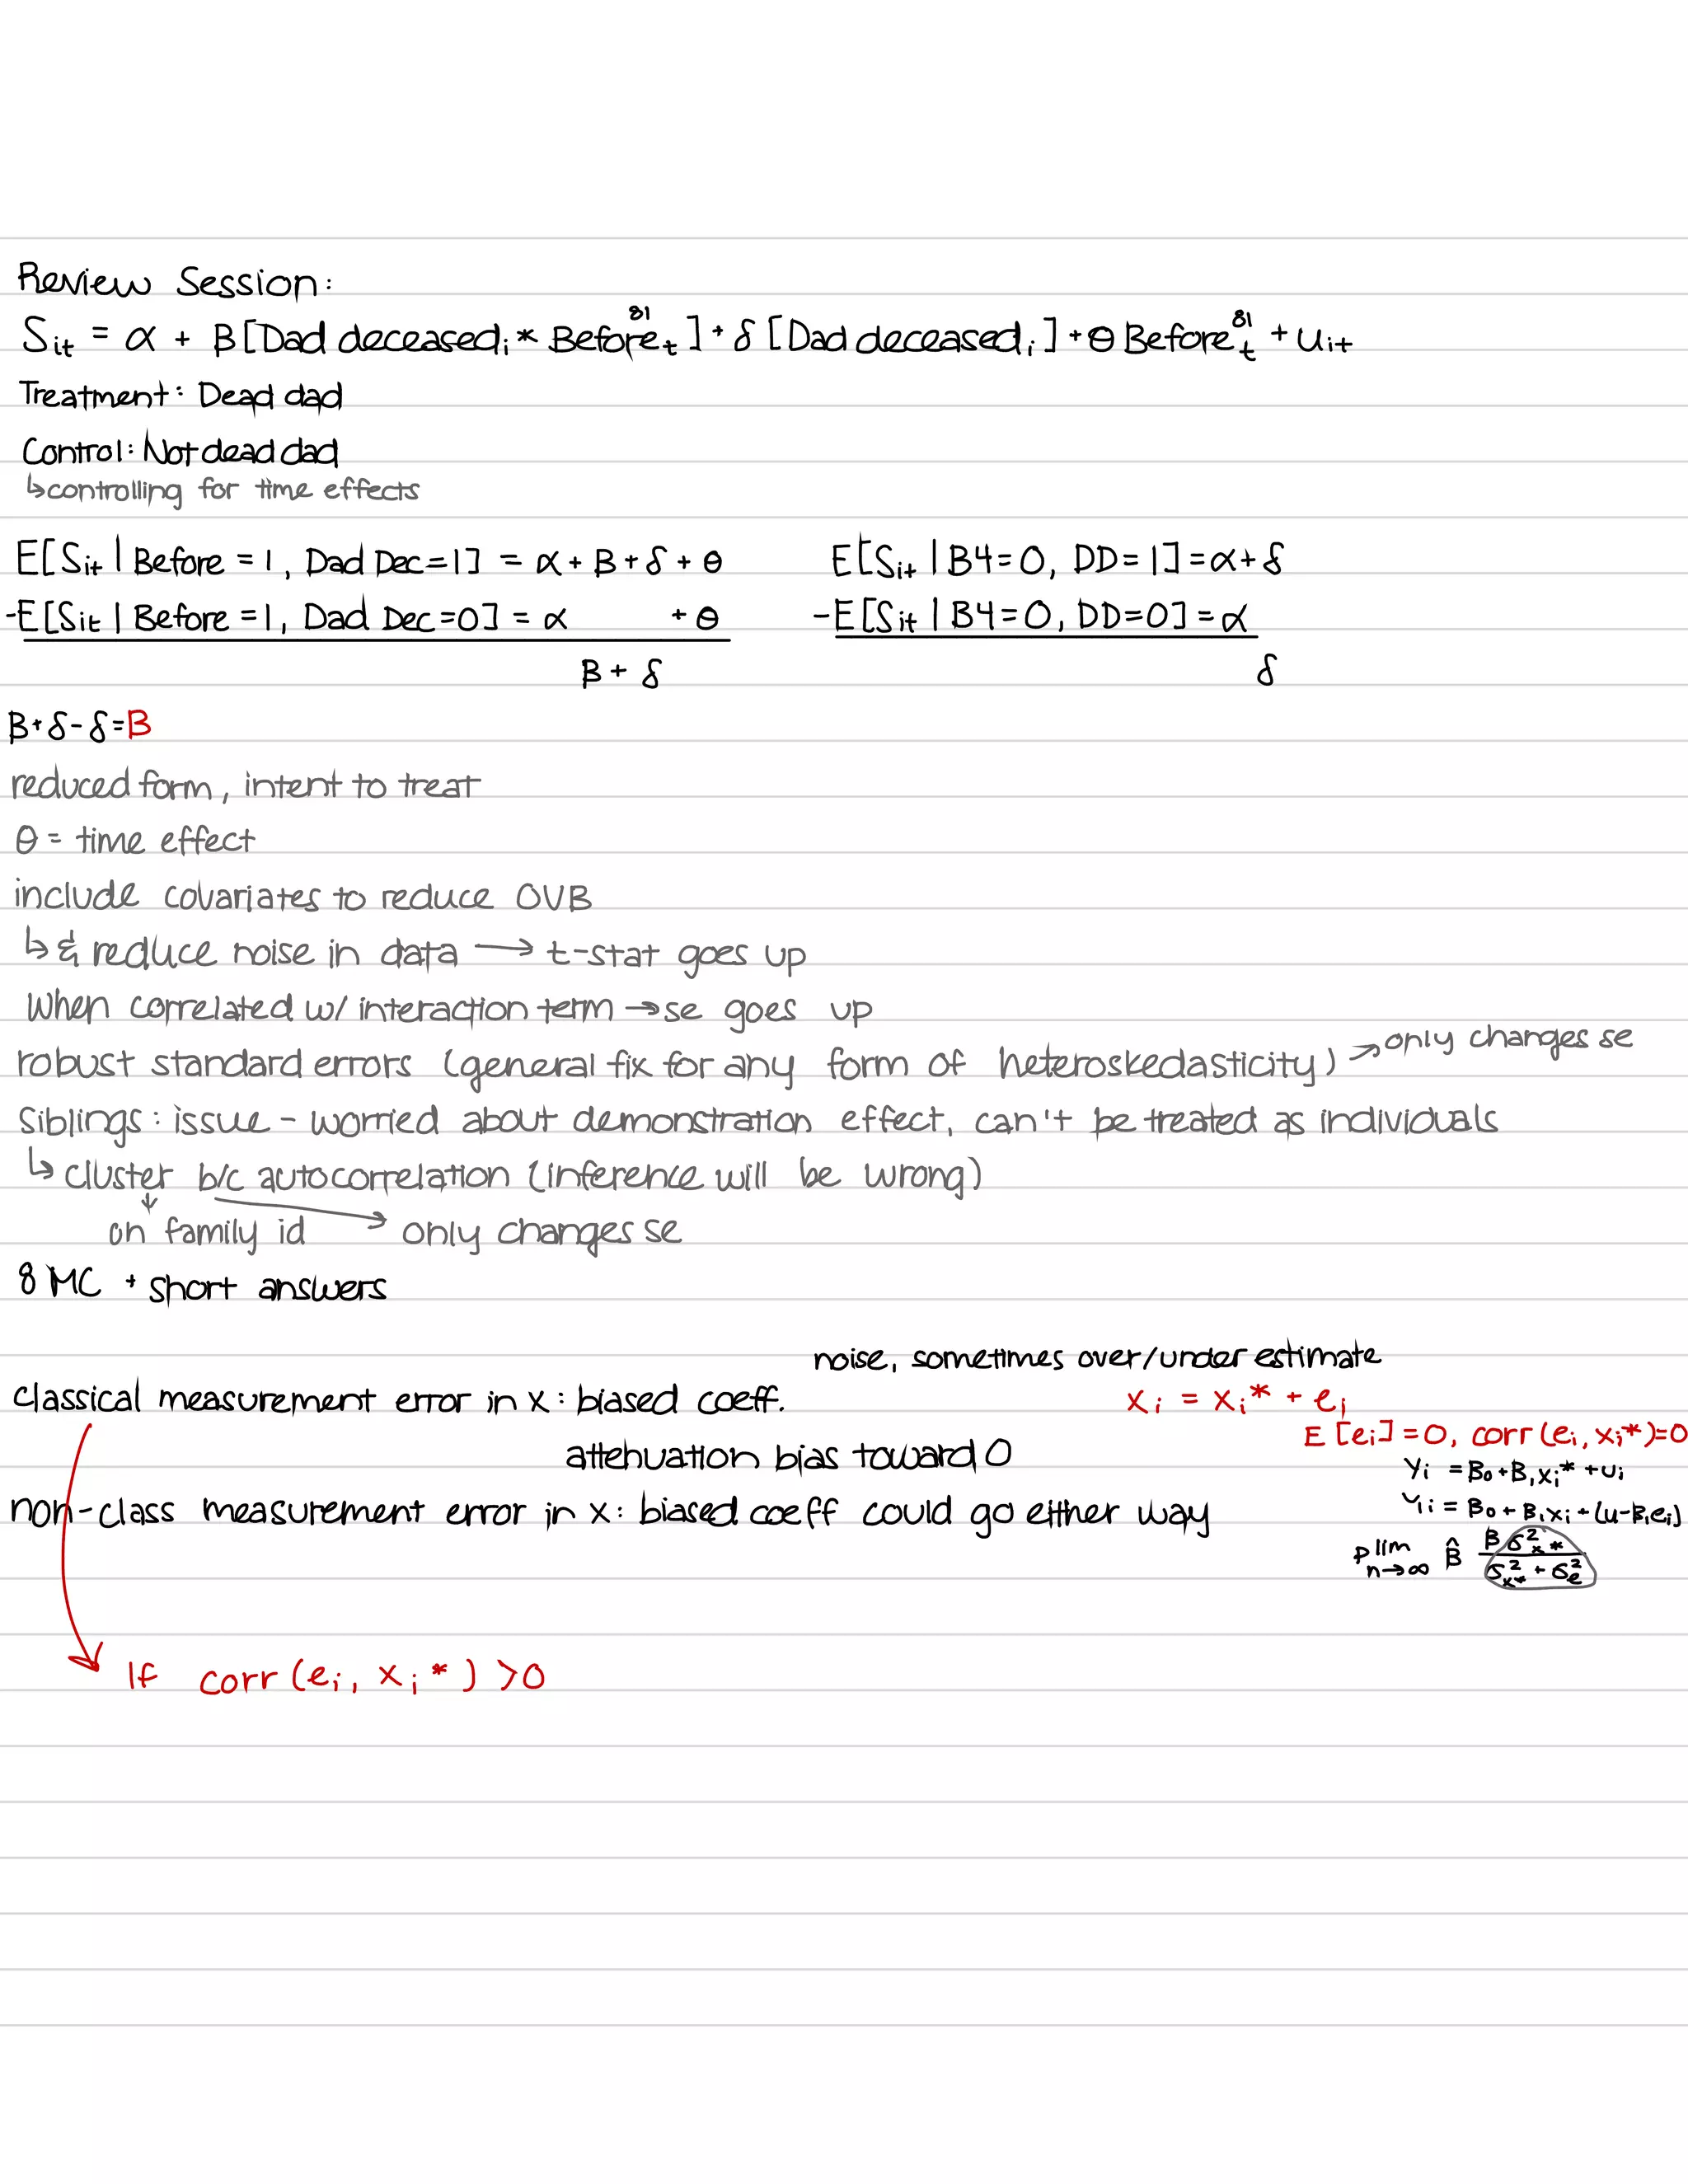 Review Session:
Sit = α + B[Dad deceasedi * Before81t] + δ[Dad deceasedi] + θ Before81t + uit
Treatment: Dead dad
Control: Not dead dad
↳controlling for time effects
E[Sit | Before = 1, Dad Dec=1] = α + B + δ + θ
E[Sit | B4=0, DD=1]=α+δ
-E[Sit | Before =1, Dad Dec=0] = α + θ
-E[Sit | B4=0, DD=0]=α
B + δ
δ
B+δ-δ=B
reduced form, intent to treat
θ = time effect
include covariates to reduce OVB
↳& reduce noise in data → t-stat goes up
When correlated w/ interaction term → se goes up
robust standard errors (general fix for any form of heteroskedasticity) → only changes se
siblings: issue - worried about demonstration effect, can't be treated as individuals
↳ cluster b/c autocorrelation (inference will be wrong)
on family id → only changes se
8 MC + short answers
noise, sometimes over/under estimate
classical measurement error in x: biased coeff.
xi = xi* + ei
E[ei]=0, corr(ei, xi*)=0
attenuation bias toward 0
Yi = B0+B1xi* +ui
non-class measurement error in x: biased coeff could go either way
Yi = B0+B1xi+(u-B1ei)
plim n→∞ B̂ Bσ²x* / σ²x* + σ²e
If corr(ei, xi*) >0